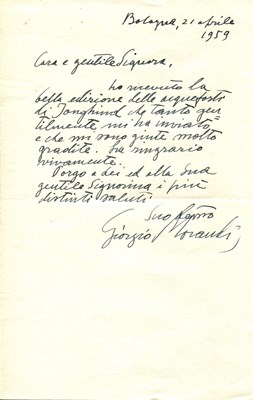 Bologna, 21 aprile
1959
Cara e gentile Signora,
ho ricevuto la
bella edizione delle acqueforti
di Jongkind che tanto gen
tilmente mi ha inviato
e che mi sono giunte molto
gradite. La ringrazio
vivamente.
Porgo a Lei ed alla Sua
gentile Signorina i più
distinti saluti
Suo
Giorgio Morandi